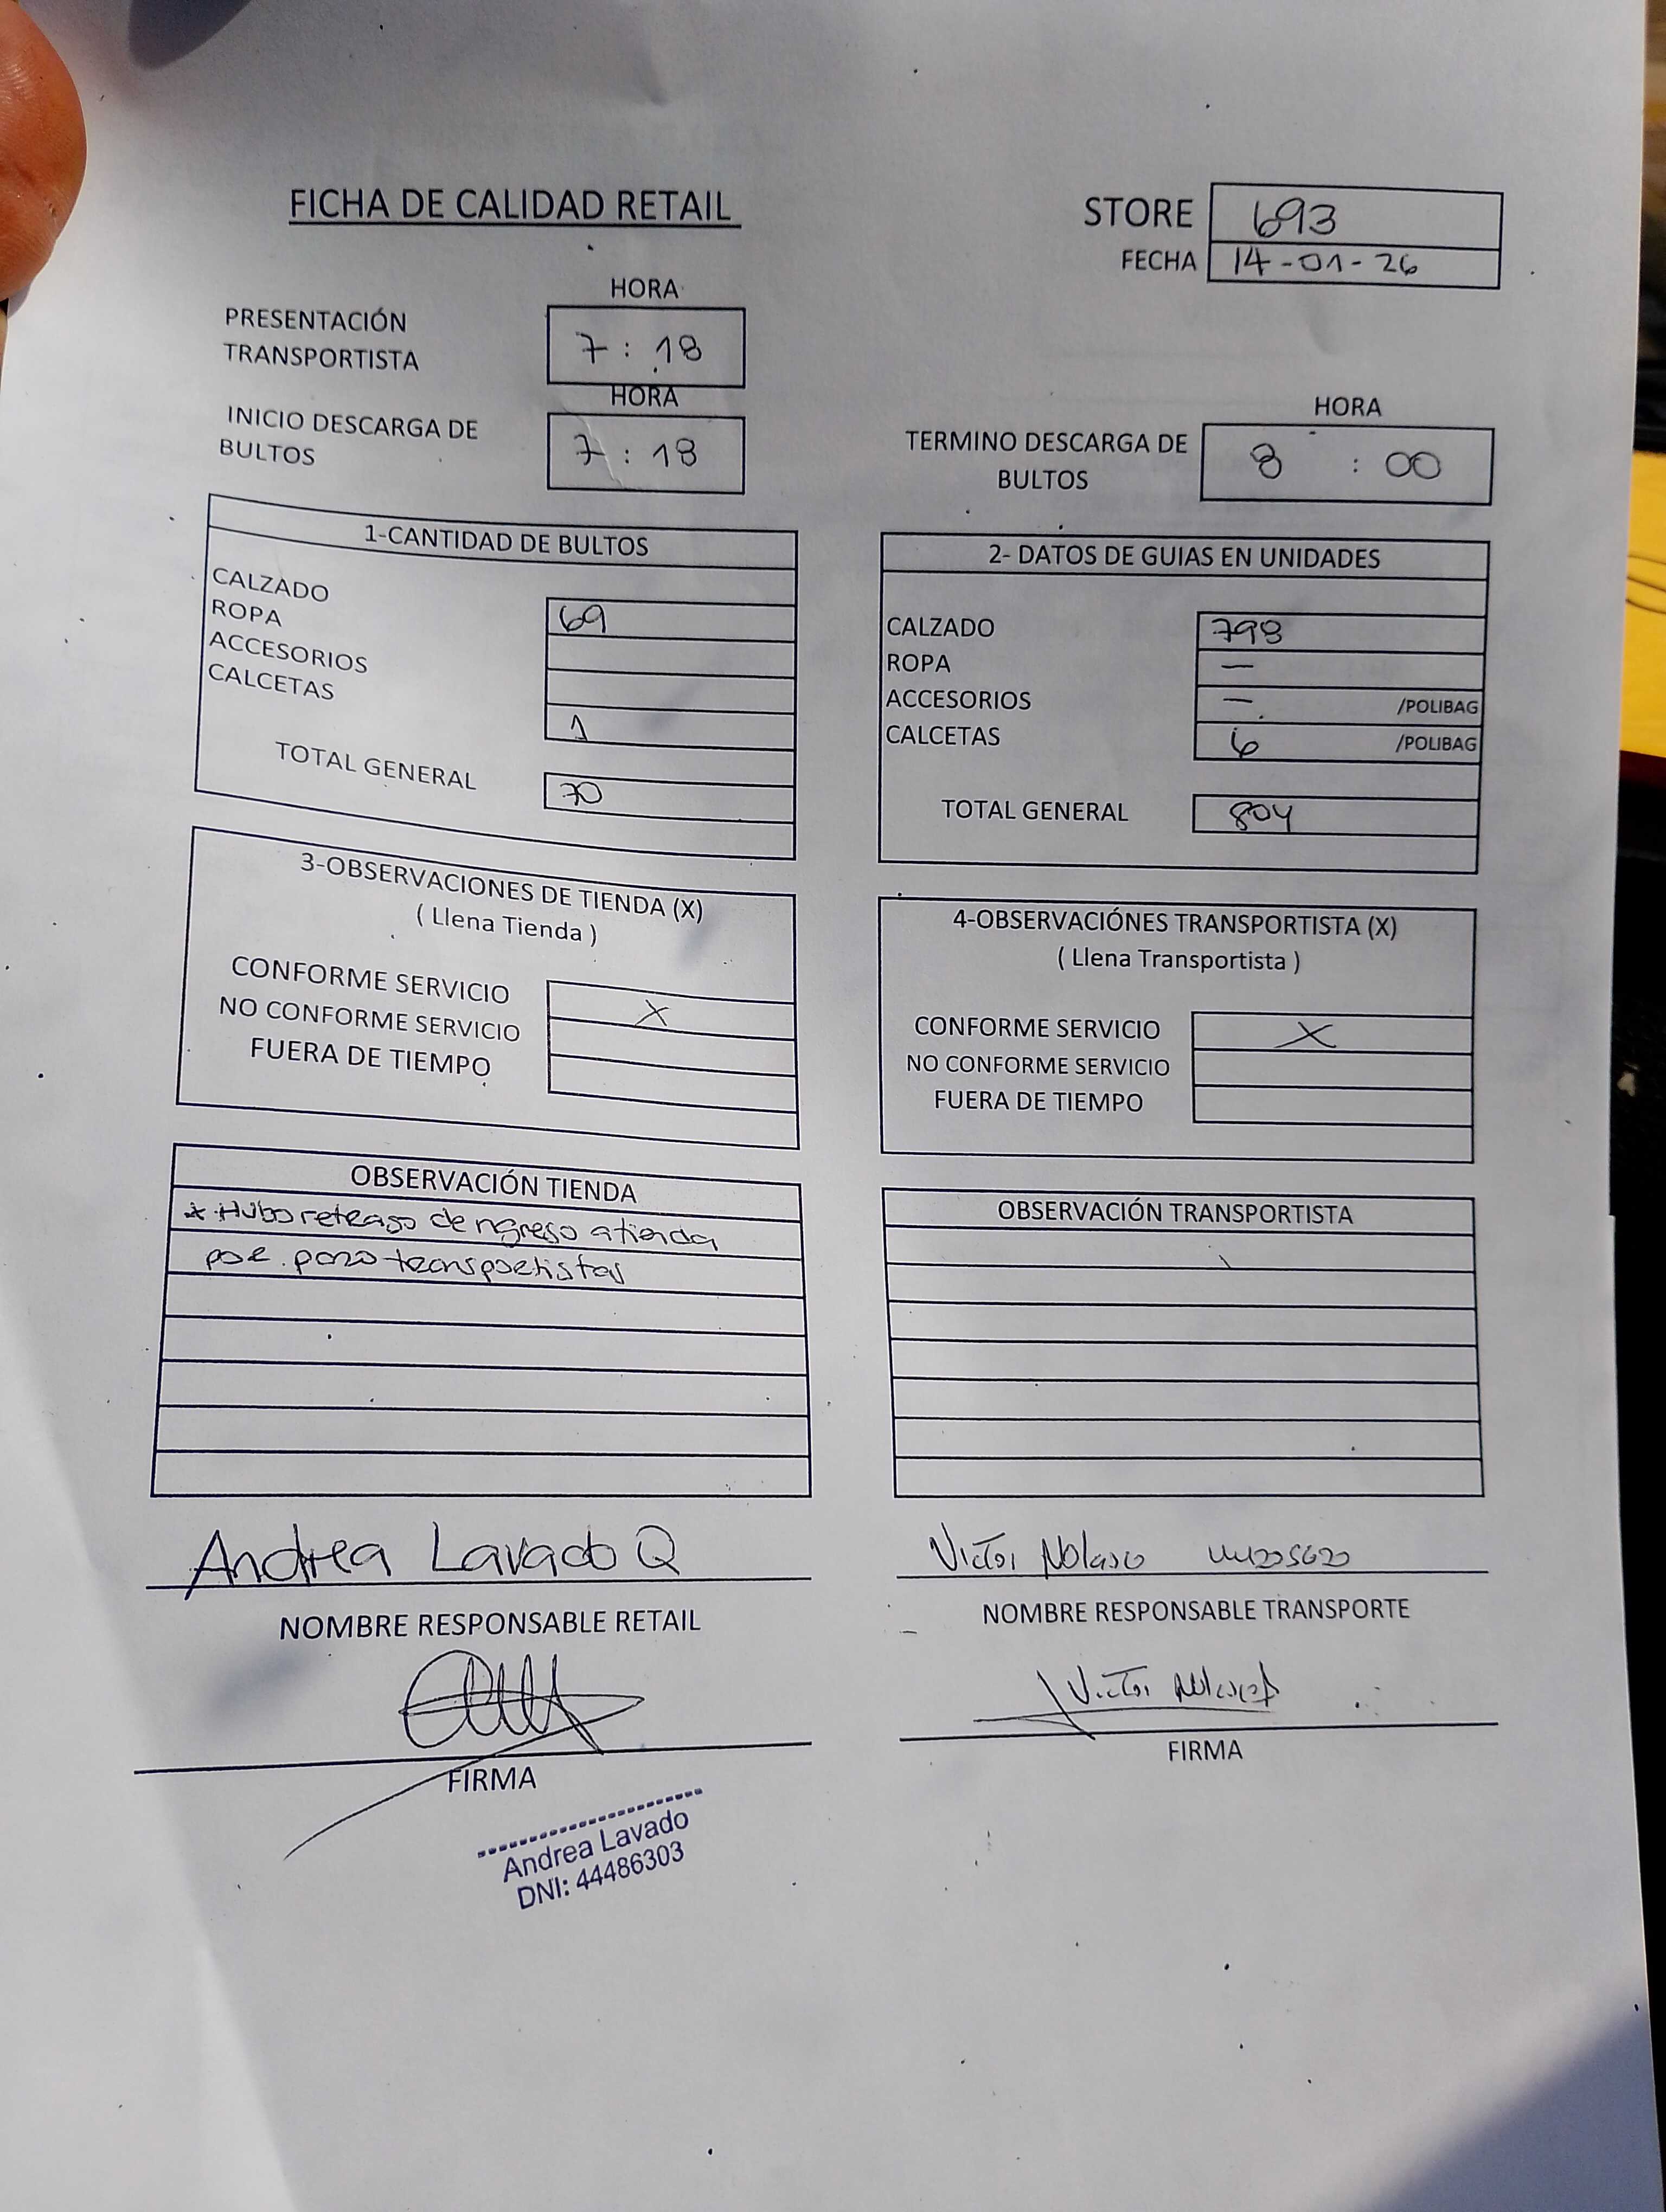 FICHA DE CALIDAD RETAIL
STORE 693
FECHA 14-01-26
HORA
PRESENTACIÓN TRANSPORTISTA 7:18
HORA
INICIO DESCARGA DE BULTOS 7:18
HORA
TERMINO DESCARGA DE BULTOS 8:00
1-CANTIDAD DE BULTOS
CALZADO 69
ROPA
ACCESORIOS
CALCETAS 1
TOTAL GENERAL 70
2- DATOS DE GUIAS EN UNIDADES
CALZADO 798
ROPA —
ACCESORIOS — /POLIBAG
CALCETAS 6 /POLIBAG
TOTAL GENERAL 804
3-OBSERVACIONES DE TIENDA (X)
( Llena Tienda )
CONFORME SERVICIO X
NO CONFORME SERVICIO
FUERA DE TIEMPO
4-OBSERVACIÓNES TRANSPORTISTA (X)
( Llena Transportista )
CONFORME SERVICIO X
NO CONFORME SERVICIO
FUERA DE TIEMPO
OBSERVACIÓN TIENDA
* Hubo retraso de ngreso a tienda
por transportistas
OBSERVACIÓN TRANSPORTISTA
Andrea Lavado Q
NOMBRE RESPONSABLE RETAIL
FIRMA
Andrea Lavado
DNI: 44486303
Victor Nolasco
NOMBRE RESPONSABLE TRANSPORTE
Victor Nolasco
FIRMA